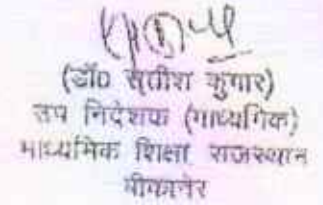 (डॉ0 सतीश कुमार)
उप निदेशक (माध्यमिक)
माध्यमिक शिक्षा राजस्थान
बीकानेर